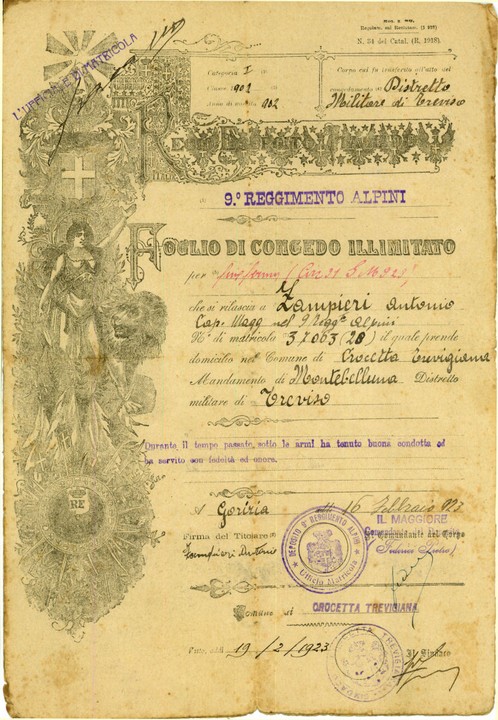 N. 34 del Catal. (R. 1918)
L'UFFICIALE DI MATRICOLA
Categoria I
Classe 1902
Anno di nascita 902
Corpo cui fu trasferito all'atto del
Distretto
Militare di Treviso
REGIO ESERCITO ITALIANO
9.° REGGIMENTO ALPINI
FOGLIO DI CONGEDO ILLIMITATO
per fine ferma (Circ 31
che si rilascia a Zampieri Antonio
Cap. Magg nel 9 Regg.to Alpini
N.° di matricola 37063 (28) il quale prende
domicilio nel Comune di Crocetta Trevigiana
Mandamento di Montebelluna Distretto
militare di Treviso
Durante il tempo passato sotto le armi ha tenuto buona condotta ed
ha servito con fedeltà ed onore.
A Gorizia addì 16 Febbraio 923
IL MAGGIORE
Firma del Titolare
Il Comandante del Corpo
Zampieri Antonio
DEPOSITO 9° REGGIMENTO ALPINI
Ufficio Matricola
FERT
Comune di CROCETTA TREVIGIANA
Visto, addì 19/2/1923
Il Sindaco